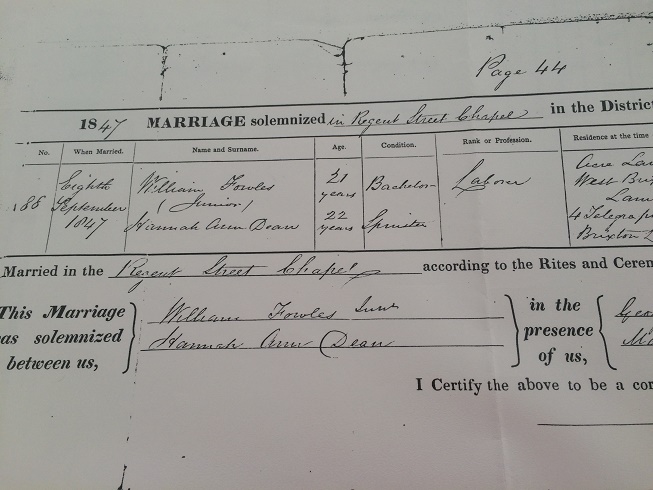 Page 44
1847 MARRIAGE solemnized in Regent Street Chapel in the District
No. When Married. Name and Surname. Age. Condition. Rank or Profession. Residence at the time
186 Eighth September 1847 William Fowles (Junior) 21 years Bachelor Labour Acre Lan West Bri Lam
Hannah Ann Dean 22 years Spinster 4 Telegrap Brixton
Married in the Regent Street Chapel according to the Rites and Ceren
This Marriage William Fowles Junr in the Geo
as solemnized Hannah Ann Dean presence
between us, of us,
I Certify the above to be a cor